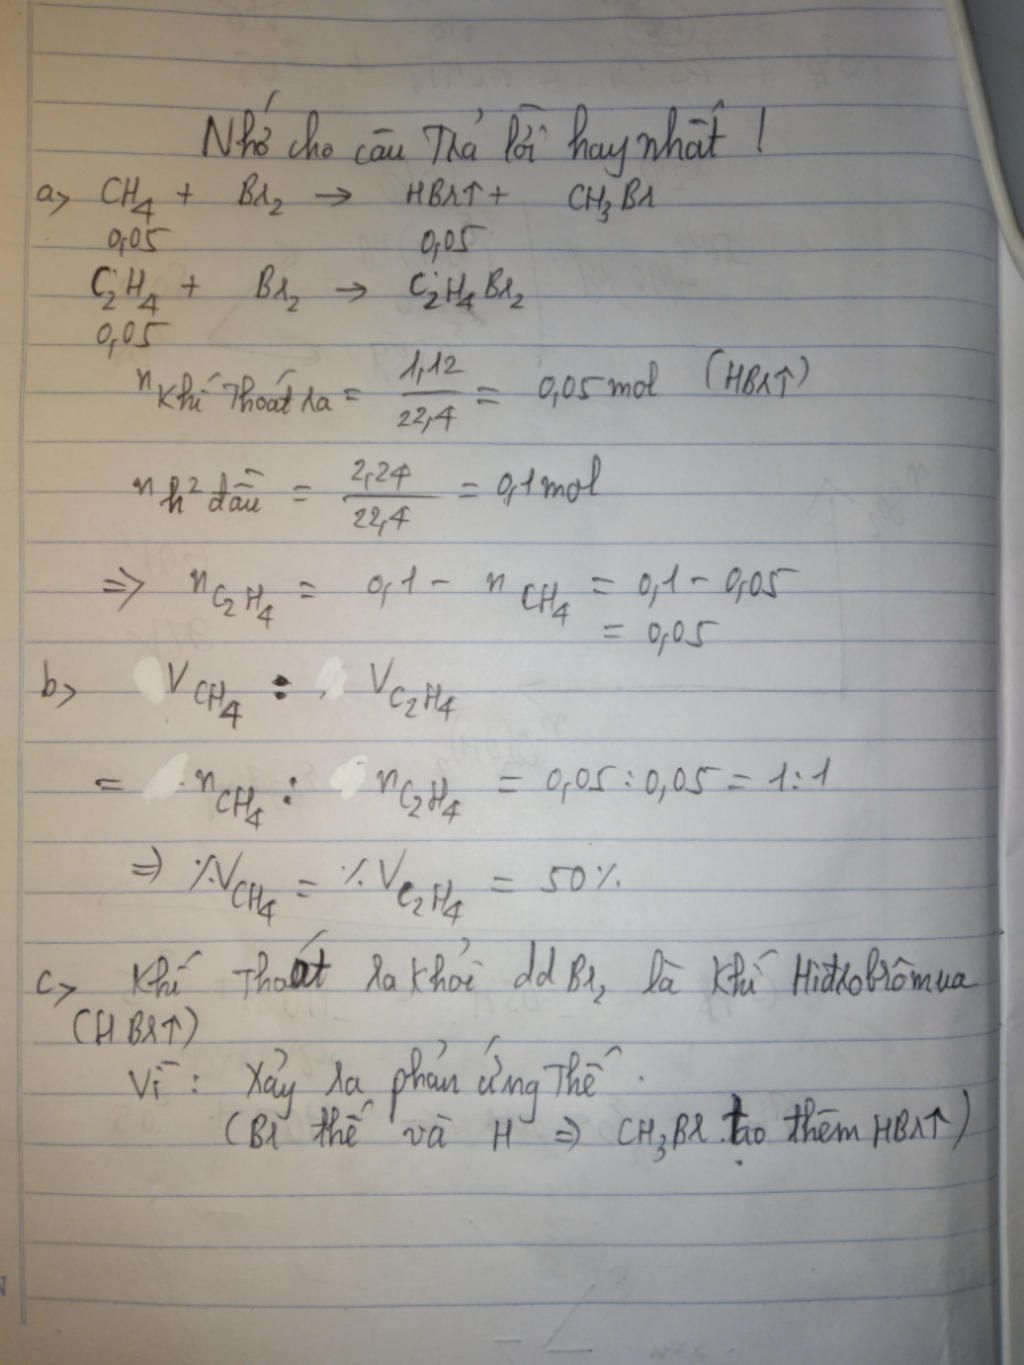 Nhớ cho câu Trả lời hay nhất !
a> CH₄ + Br₂ → HBr↑ + CH₃Br
0,05 0,05
C₂H₄ + Br₂ → C₂H₄Br₂
0,05
n Khí Thoát ra = 1,12 / 22,4 = 0,05 mol (HBr↑)
n h² đầu = 2,24 / 22,4 = 0,1 mol
=> n C₂H₄ = 0,1 - n CH₄ = 0,1 - 0,05
= 0,05
b> V CH₄ : V C₂H₄
= n CH₄ : n C₂H₄ = 0,05 : 0,05 = 1 : 1
=> %V CH₄ = %V C₂H₄ = 50%.
c> Khí Thoát ra khỏi dd Br₂ là Khí Hiđrobrômua
(HBr↑)
Vì : Xảy ra phản ứng Thế .
(Br thế và H => CH₃Br tạo thêm HBr↑)